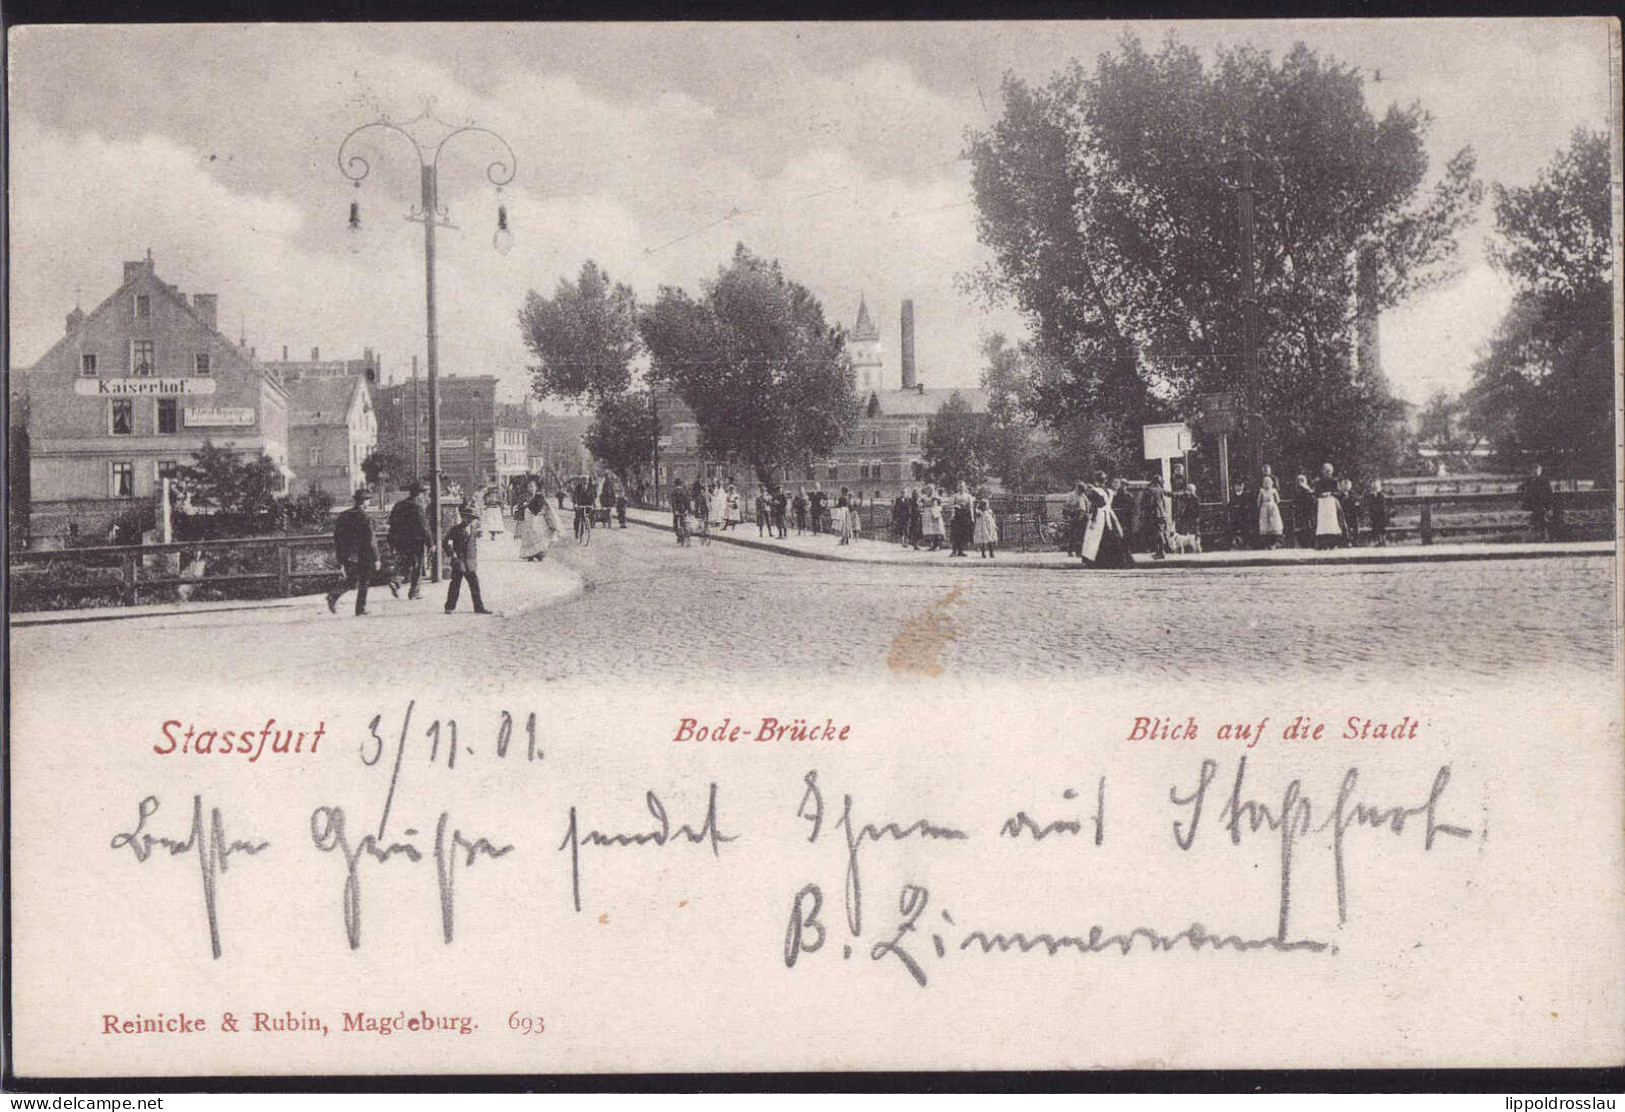 Kaiserhof.
Stassfurt 3/11.01. Bode-Brücke Blick auf die Stadt
Beste Grüße sendet Ihnen aus Staßfurt
B. Zimmermann.
Reinicke & Rubin, Magdeburg. 693
www.delcampe.net lippoldrosslau